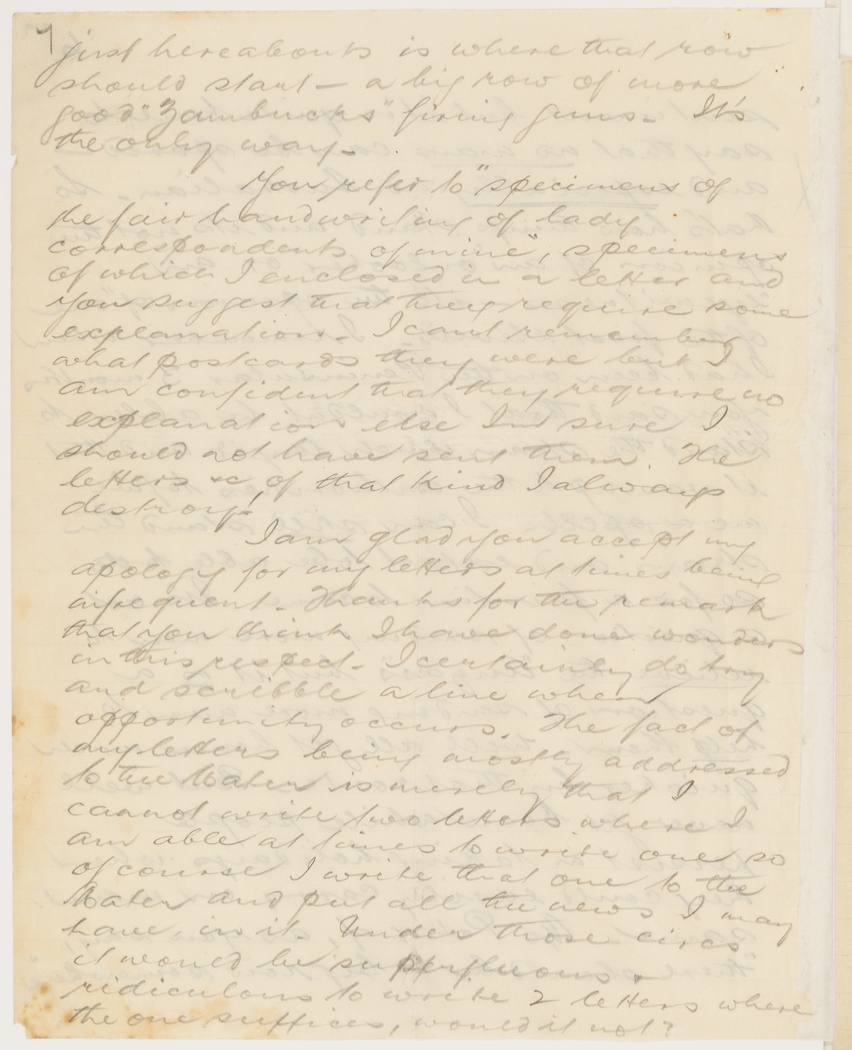 7
just hereabouts is where that row
should start – a big row of more
good "Zambucks" firing guns – It's
the only way –
You refer to "specimens of
the fair handwriting of lady
correspondents of mine", specimens
of which I enclosed in a letter and
you suggest that they require some
explanation – I cant remember
what postcards they were but I
am confident that they require no
explanation else I'm sure I
should not have sent them. The
letters &c, of that kind I always
destroy –
I am glad you accept my
apology for my letters at times being
infrequent – Thanks for the remark
that you think I have done wonders
in this respect – I certainly do try
and scribble a line when
opportunity occurs. The fact of
my letters being mostly addressed
to the Mater is merely that I
cannot write two letters where I
am able at times to write one so
of course I write that one to the
Mater and put all the news I may
have, in it. Under those circs
it would be superfluous &
ridiculous to write 2 letters where
the one suffices, would it not?